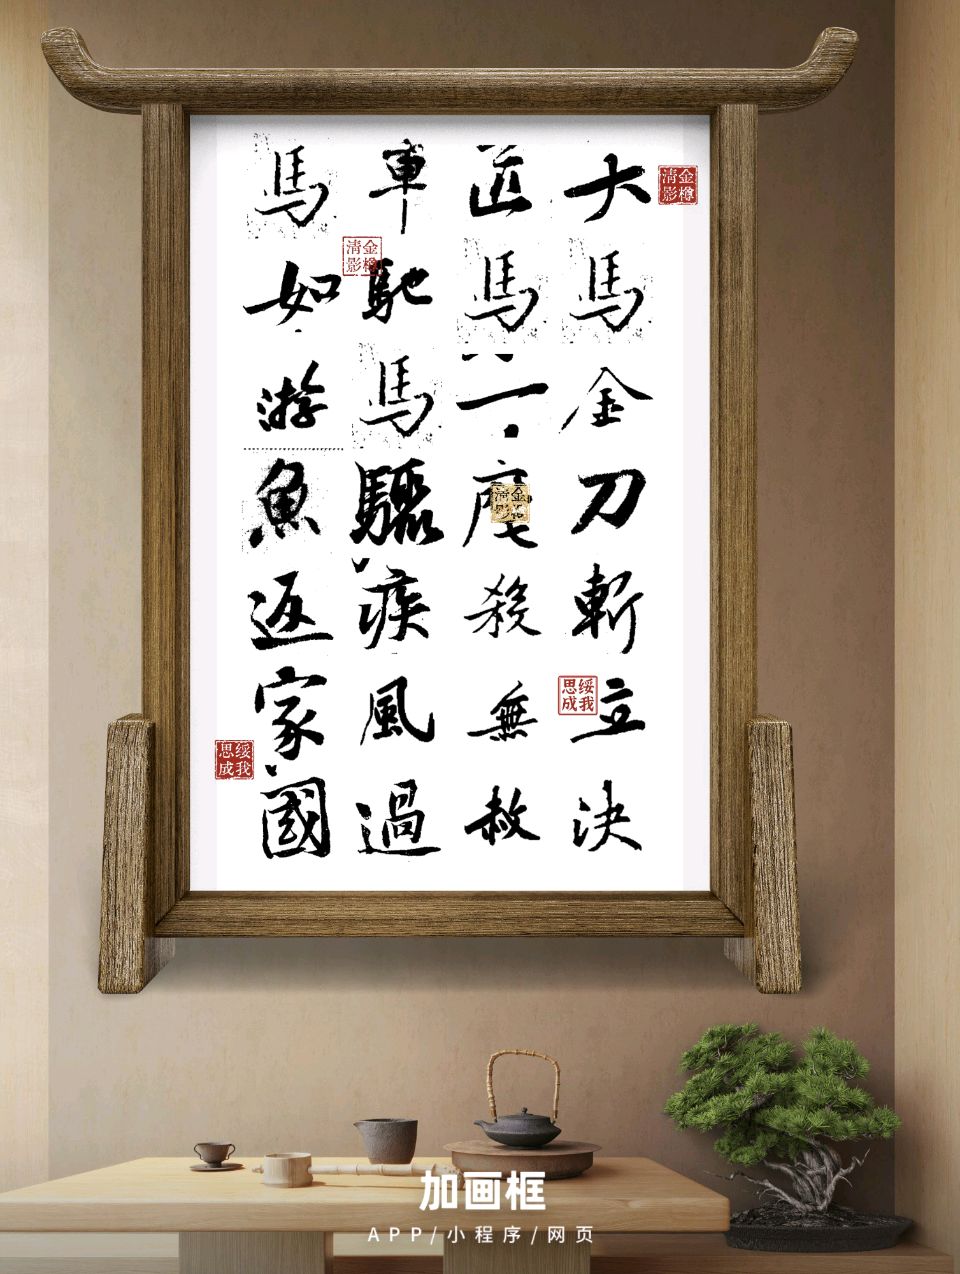 大馬金刀斬立決
匹馬一殺無赦
車馳馬驟疾風過
馬如游魚返家國
金樽清影
金樽清影
绥我思成
绥我思成
加画框
APP/小程序/网页